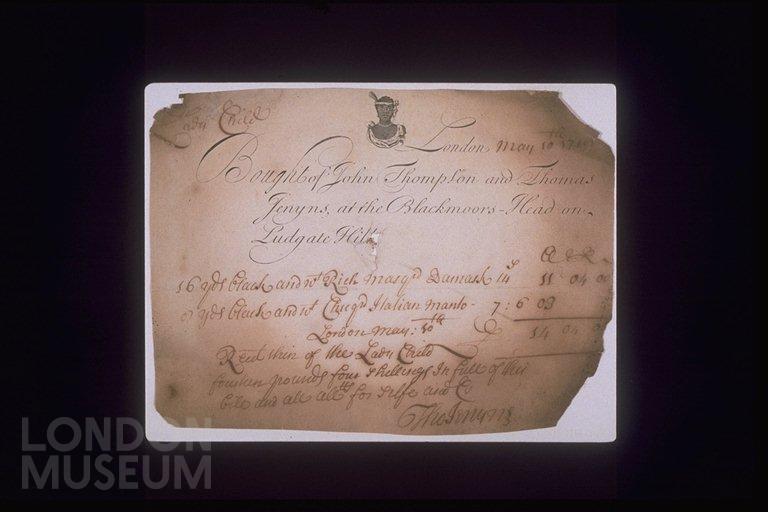 Lady Child
London May 10th
Bought of John Thompson and Thomas
Jenyns, at the Blackmoors-Head on
Ludgate Hill
16 yds black and wt Rich Masqd Damask 14s 11 04 00
yds black and wt Italian Manto - 7:6 03
London May: 10th 14 04 0
Recd then of the Lady Child
fourteen pounds four shillings In full of this
bill and all accts for selfe and Co
Tho: Jenyns
LONDON
MUSEUM